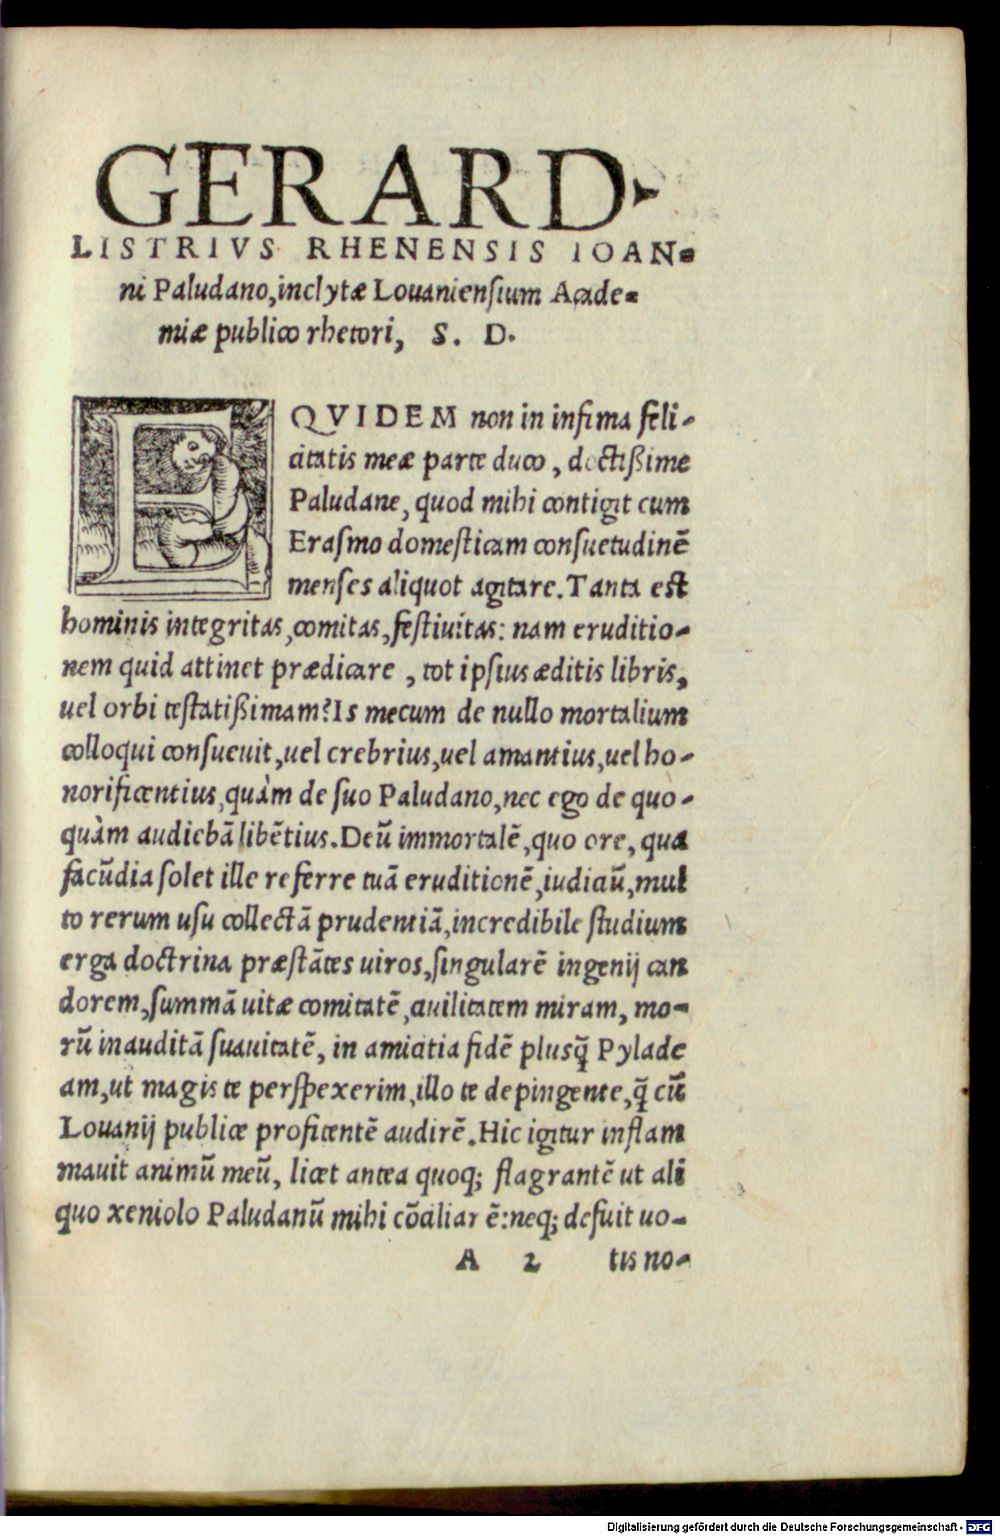 GERARD.
LISTRIVS RHENENSIS IOAN-
ni Paludano, inclytæ Louaniensium Acade-
miæ publico rhetori, S. D.
EQVIDEM non in infima feli-
citatis meæ parte duco, doctißime
Paludane, quod mihi contigit cum
Erasmo domesticam consuetudinẽ
menses aliquot agitare. Tanta est
hominis integritas, comitas, festiuitas: nam eruditio-
nem quid attinet prædicare, tot ipsius æditis libris,
uel orbi testatißimam? Is mecum de nullo mortalium
colloqui consueuit, uel crebrius, uel amantius, uel ho-
norificentius, quàm de suo Paludano, nec ego de quo-
quàm audiebã libẽtius. Deũ immortalẽ, quo ore, qua
facũdia solet ille referre tuã eruditionẽ, iudiciũ, mul
to rerum usu collectã prudentiã, incredibile studium
erga doctrina præstãtes uiros, singularẽ ingenij can
dorem, summã uitæ comitatẽ, ciuilitatem miram, mo-
rũ inauditã suauitatẽ, in amicitia fidẽ plusq̃ Pylade
am, ut magis te perspexerim, illo te depingente, q̃ cũ
Louanij publice profitentẽ audirẽ. Hic igitur inflam
mauit animũ meũ, licet antea quoq; flagrantẽ ut ali
quo xeniolo Paludanũ mihi cõciliarẽ: neq; defuit uo-
A 2 tis no-
Digitalisierung gefördert durch die Deutsche Forschungsgemeinschaft - DFG